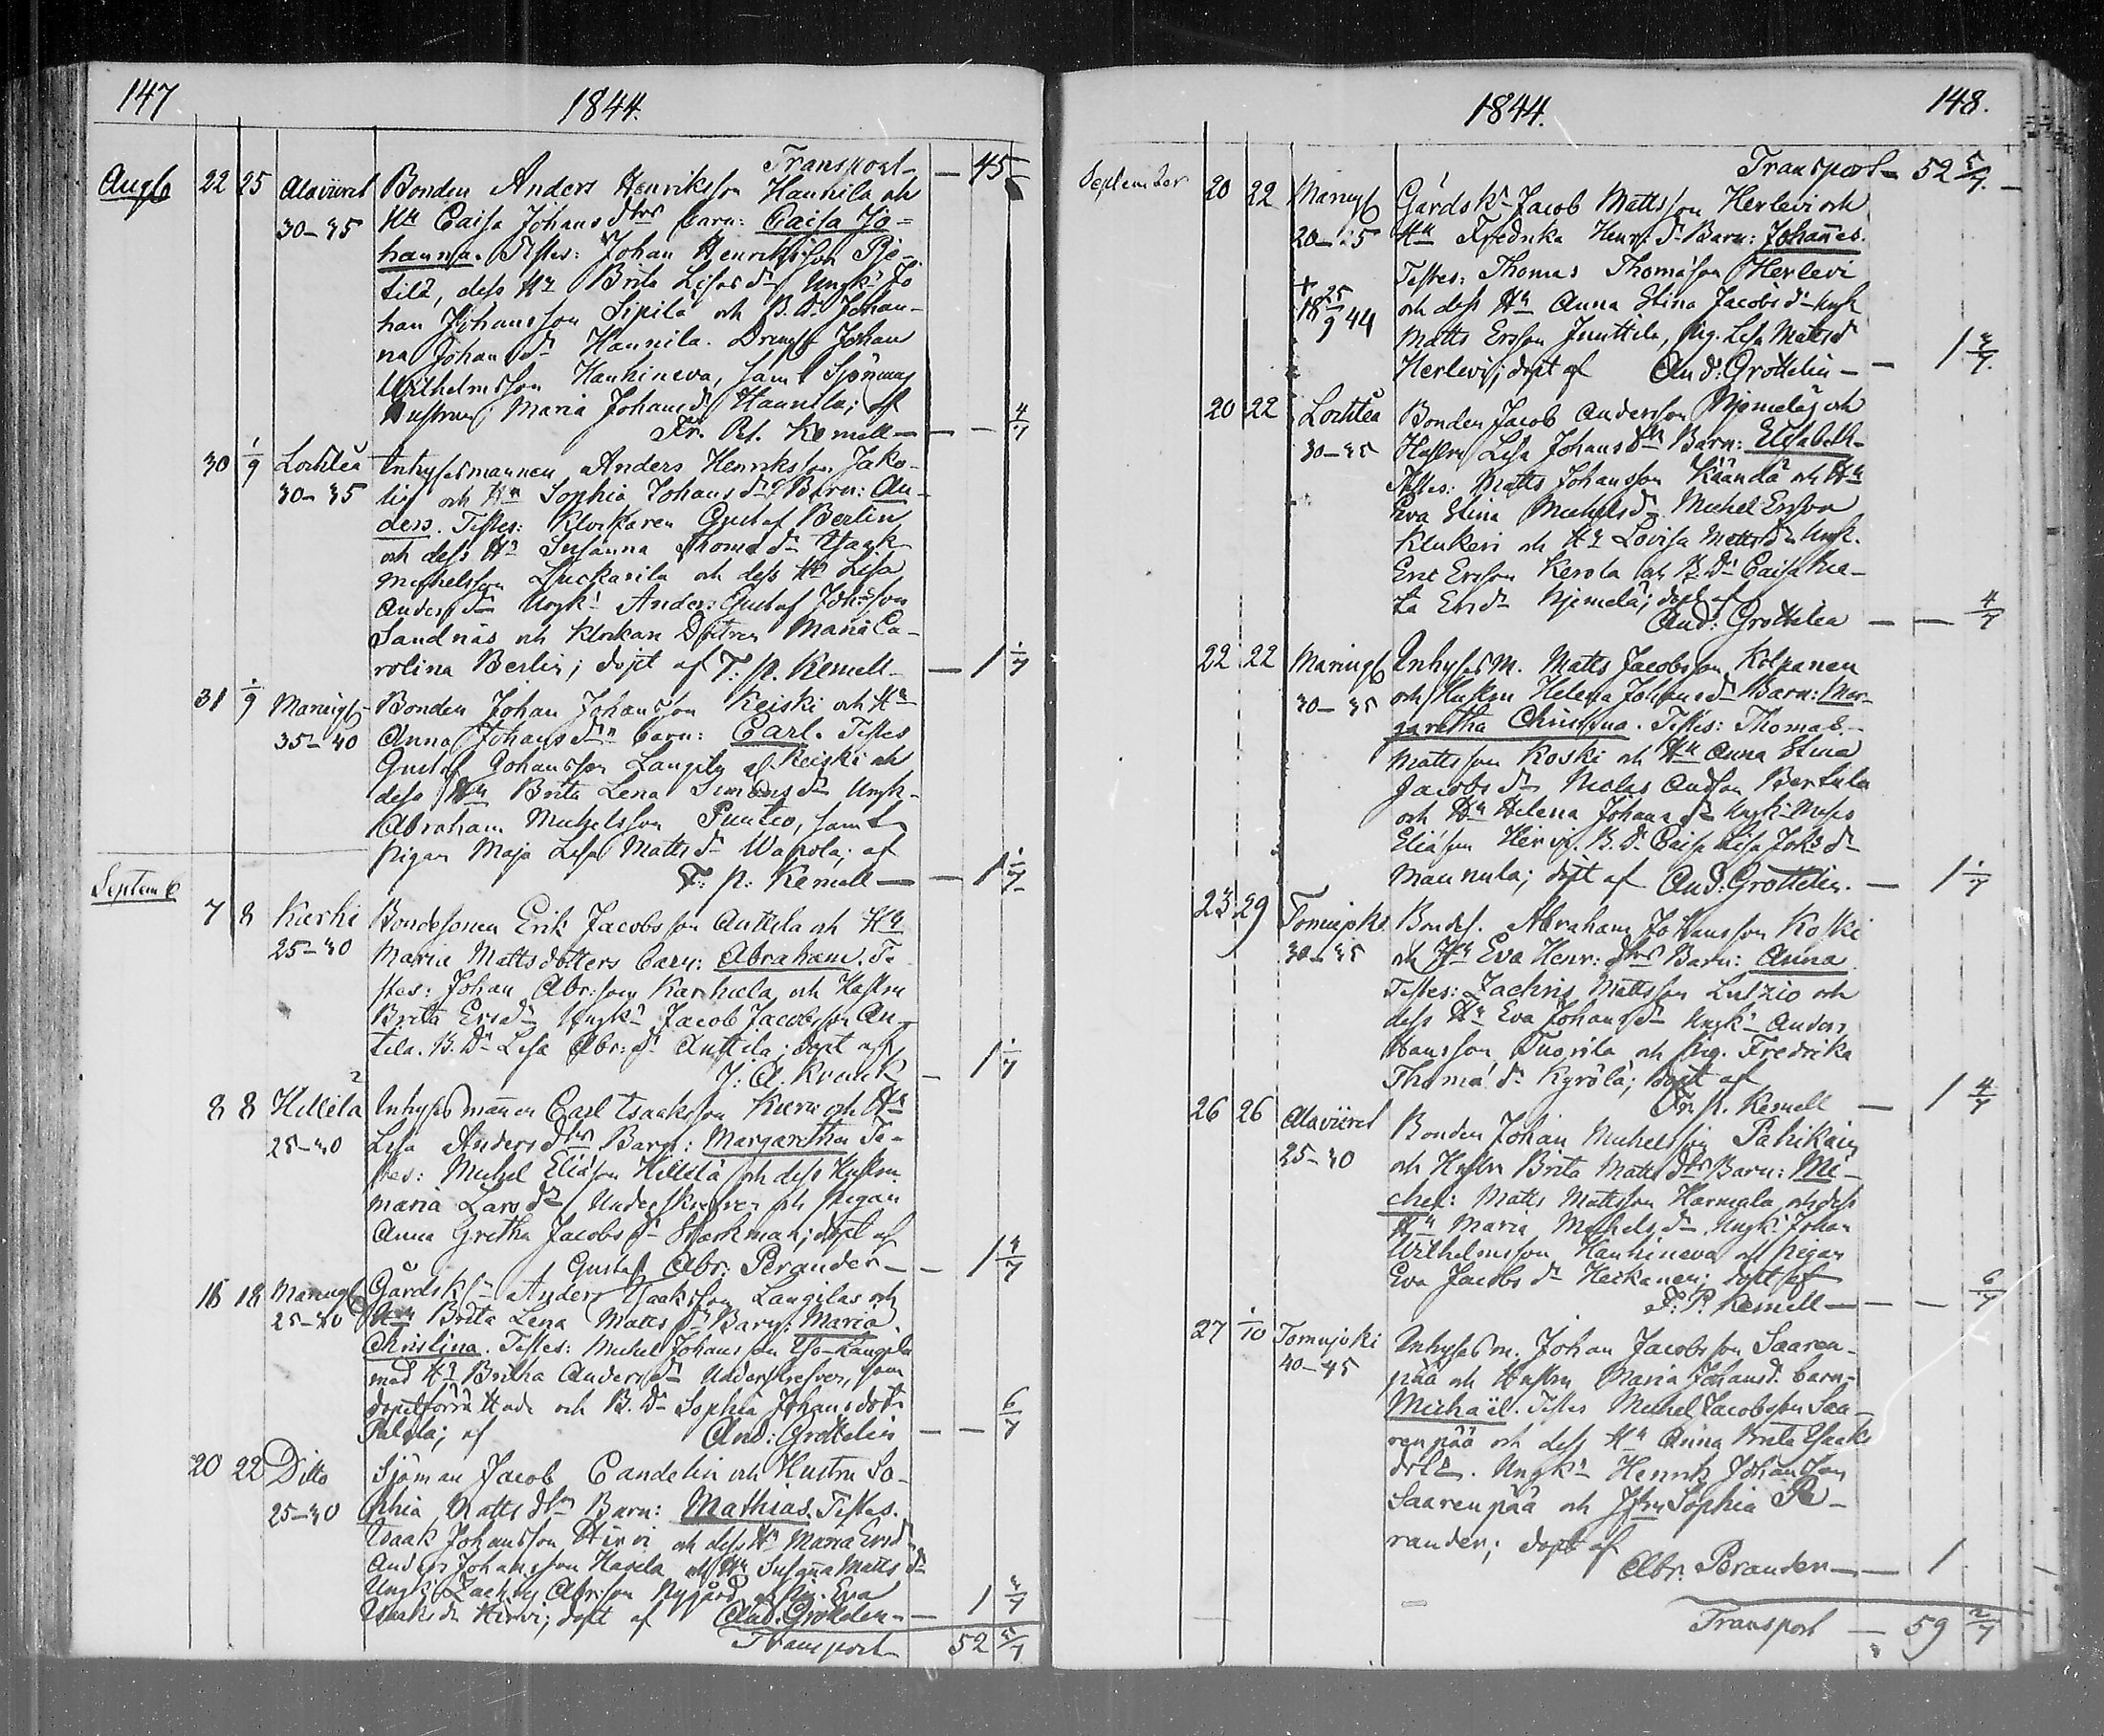 147
1844.
Transport — 45
Augs 22 25 Alaviirel Bonden Anders Henriksson Hannila och
30–35 Hu Caisa Johans dtrs barn: Caisa Jo-
hanna. Testes: Johan Henriksson Pie-
tilä, dess Hu Brita Lisas dr Ungk: Jo
han Johansson Sipilä och B. Dr Johan-
na Johans dr Hannila. Drengs Johan
Wilhelmsson Hanhineva, samt Sjömans
hustrun Maria Johans dr Hannila; af
Fr. Pet. Kemell — — 4/7
30 1/9 Lochteå Inhysesmannen Anders Henriksson Jako-
30–35 och Hu Sophia Johans dr Barn: An-
ders. Testes: Klockaren Gustaf Berlin
och dess Hu Susanna Thomæ dr Isaak
Michelsson Luckarila och dess Hu Lisa
Anders dr Ungk: Anders Gustaf Johsson
Sandnäs och klockare Dottren Maria Ca-
rolina Berlin; döpt af F: p. Kemell — 1 1/7
31 1/9 Maringb Bonden Johan Johansson Keiski och Hu
35–40 Anna Johans dr barn: Carl. Testes
Gustaf Johansson Langila af Keiski och
dess Hu Brita Lena Simons dr Ungk-
Abraham Michelsson Puntio, samt
pigan Maja Lisa Matts dr Wapola; af
F: p: Kemell — — 1 1/7
Septemb
7 8 Karhi Bondesonen Erik Jacobsson Anttila och Hu
25–30 Maria Mattsdotters barn: Abraham. Te
stes: Johan Abr:son Karhula och Hustru
Brita Ersdr Ungkn Jacob Jacobsson An-
tila. B. Dr Lisa Abr: dr Anttila; döpt af
J: A. Kranck — 1 1/7
8 8 Hillilä Inhysesmannen Carl Isaaksson Kiera och Hu
25–30 Lisa Anders dtrs Barn: Margaretha Te-
stes: Michel Eliæson Hillilä och dess Hustru
Maria Lars dr Underskrefven och Pigan
Anna Gretha Jacobs dr Starkman; döpt af
Gustaf Abr: Perander — — 1 4/7
18 18 Maringb Gårdsk:n Anders Isaksson Langilas och
25–30 Hu Brita Lena Matts dr Barn: Maria
Christina. Testes: Michel Johansson Iso-Langila
med Hu Britha Anders dr Underskrefven, som
dopet förrättade och B. Dr Sophia Johansdotr
Palola; af And: Grottelin — — 6/7
20 22 Ditto Sjöman Jacob Candelin och Hustru So-
25–30 phia Matts dtrs Barn: Mathias. Testes.
Isaak Johansson Hirvi och dess Hu Maria Ersdr
Anders Johansson Havela och Hu Susanna Matts dr
Ungk: Zachris Abr:son Nygård och Pig. Eva
Isaks dr Hirvi; döpt af And. Grottelin — 1
Transport 52 5/7
1844.
148.
Transport — 52 5/7
September 20 22 Maringb Gårdskn Jacob Mattsson Herlevi och
Hu Fredrika Henr: dr Barn: Johannes.
Testes: Thomas Thomæson Herlevi
+ 25/9 1844 och dess Hu Anna Stina Jacobs dr Ungk
Matts Ersson Junttila, Pig. Lisa Mattsd
Herlevi; döpt af And: Grottelin — — 1
20 22 Lochteå Bonden Jacob Andersson Njemelä och
30–35 Hustru Lisa Johans dtrs Barn: Elisabeth.
Testes: Matts Johansson Käändä och Hu
Eva Stina Michelsdr Michel Ersson
Klukeri och Hu Lovisa Mattsdr Ungk.
Eric Ersson Kerola och B: Dr Caisa Gre-
ta Ersdr Njemelä; döpt af
And: Grottelin — — 4/7
22 22 Maringb Inhyses M. Matts Jacobsson Kolpanen
30–35 och Hustru Helena Johansdr Barn: Mar-
garetha Christina. Testes: Thomas
Mattsson Koski och Hu Anna Stina
Jacobs dr Niclas Andsson Bertula
och Hu Helena Johans dr Ungk:
Eliæson Hirvi. B. Dr Caisa Lisa Johs dr
Mannula; döpt af And. Grottelin. — 1 1/7
23 29 Tomujoki Bondes. Abraham Johansson Koski
30–35 och Hu Eva Henr: dtrs Barn: Anna
Testes: Zachris Mattsson Lutzio och
dess Hu Eva Johans dr Ungkn Anders
Hansson Tuorila och Pig. Fredrika
Thomæ dr Kyrölä; döpt af
Fr. p. Kemell — 1 4/7
26 26 Alaviirel Bonden Johan Michelsson Pahikain
25–30 och Hustru Brita Matts dtrs Barn: Mi-
chel: Matts Mattsson Harmala och dess
Hu Maria Michels dr Ungk: Johan
Wilhelmsson Hanhineva och pigan
Eva Jacobs dr Heikanen; döpt af
F: P. Kemell — — 6/7
27 1/10 Tomujoki Inhyses m. Johan Jacobsson Saaren-
40–45 pää och Hustru Maria Johansd. barn-
Michaël. Testes Michel Jacobsson Saa-
renpää och dess Hu Anna Brita Isaks
dotr. Ungkn Henrik Johansson
Saarenpää och Jfru Sophia Pe-
rander; döpt af
Abr: Perander — — 1
Transport — 59 2/7